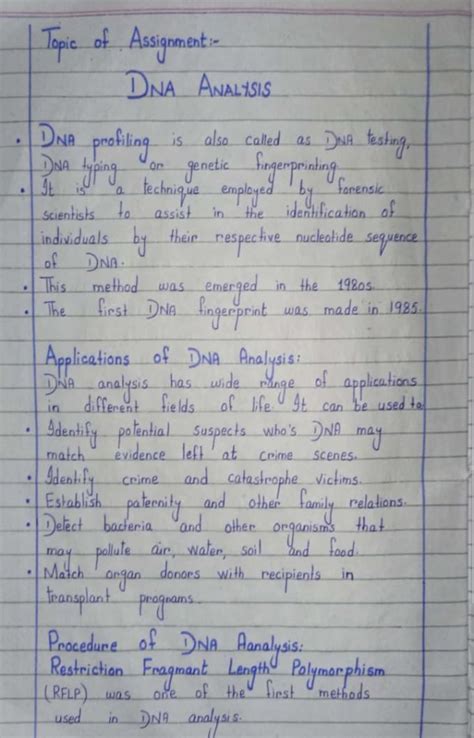 Topic of Assignment:-
DNA ANALYSIS
• DNA profiling is also called as DNA testing,
DNA typing or genetic fingerprinting.
• It is a technique employed by forensic
scientists to assist in the identification of
individuals by their respective nucleotide sequence
of DNA.
• This method was emerged in the 1980s.
• The first DNA fingerprint was made in 1985.
Applications of DNA Analysis:
DNA analysis has wide range of applications
in different fields of life. It can be used to
• Identify potential suspects who's DNA may
match evidence left at crime scenes.
• Identify crime and catastrophe victims.
• Establish paternity and other family relations.
• Detect bacteria and other organisms that
may pollute air, water, soil and food.
• Match organ donors with recipients in
transplant programs.
Procedure of DNA Aanalysis:
Restriction Fragmant Length Polymorphism
(RFLP) was one of the first methods
used in DNA analysis.